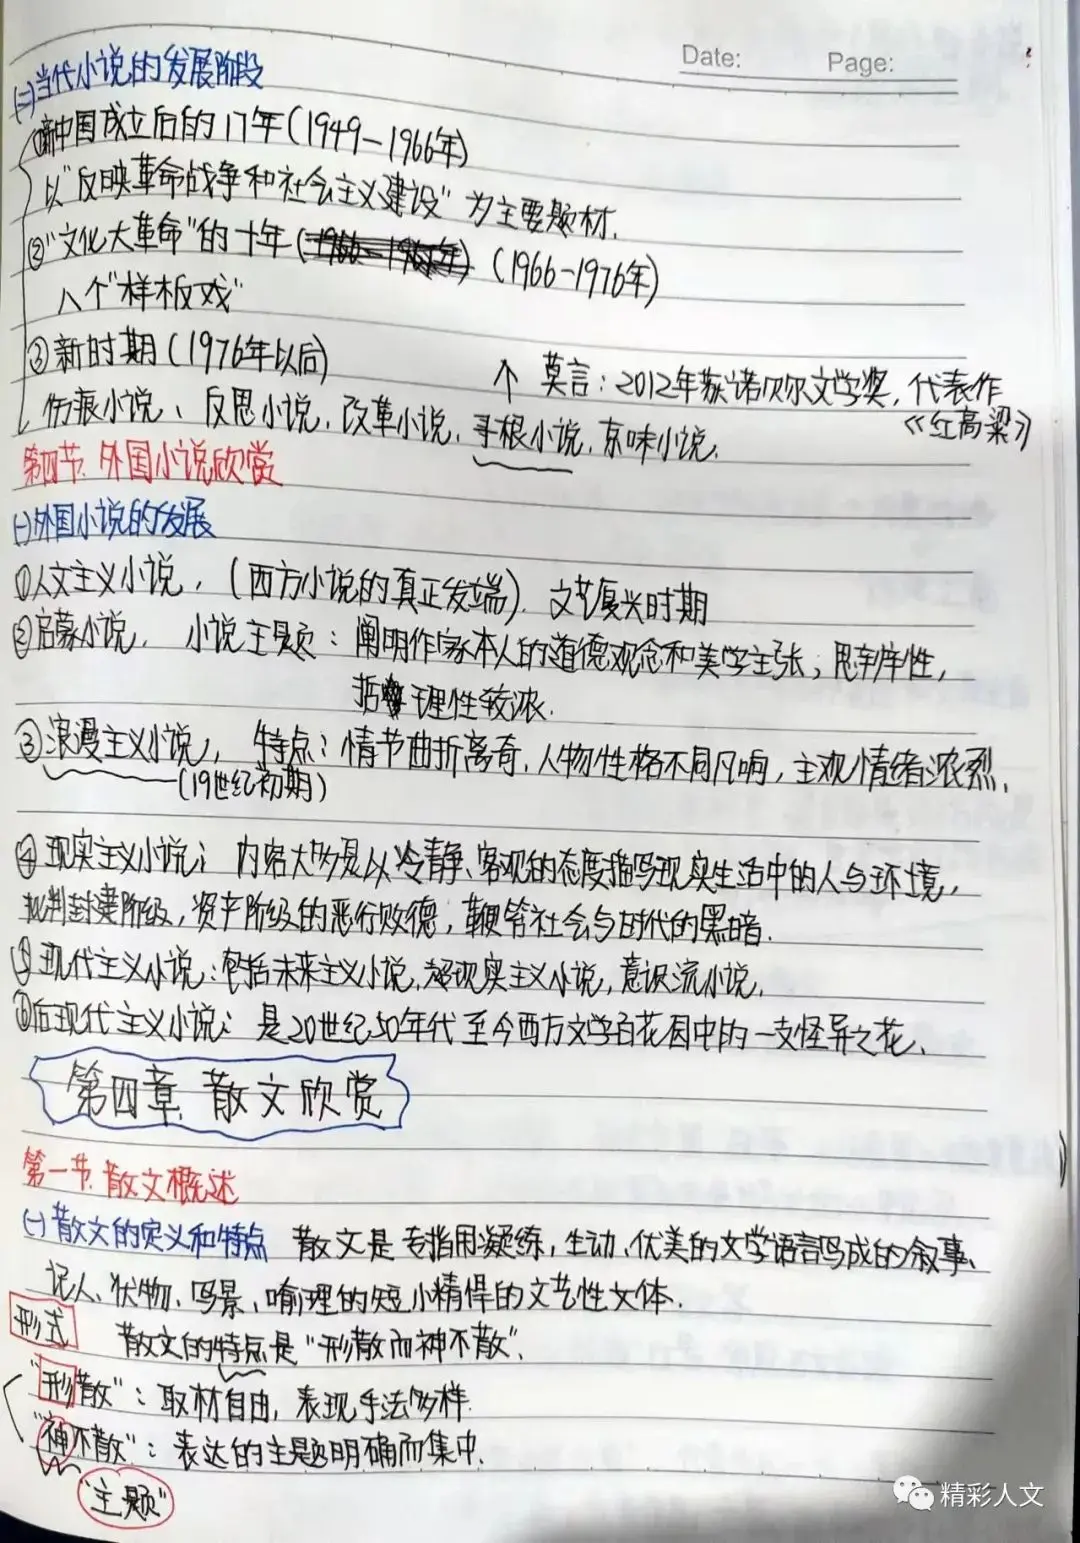 Date: Page:
(二)当代小说的发展阶段
①新中国成立后的17年(1949-1966年)
以"反映革命战争和社会主义建设"为主要题材.
②"文化大革命"的十年( (1966-1976年)
八个"样板戏"
③新时期(1976年以后)
↑ 莫言:2012年获诺贝尔文学奖,代表作
《红高粱》
伤痕小说、反思小说,改革小说,寻根小说,京味小说,
第四节.外国小说欣赏
(一)外国小说的发展
①人文主义小说,(西方小说的真正发端).文艺复兴时期
②启蒙小说, 小说主题:阐明作家本人的道德观念和美学主张;思辨性,
哲理性较浓.
③浪漫主义小说, 特点:情节曲折离奇,人物性格不同凡响,主观情绪浓烈,
(19世纪初期)
④现实主义小说; 内容大多是以冷静、客观的态度描写现实生活中的人与环境,
批判封建阶级,资产阶级的恶行败德,鞭笞社会与时代的黑暗.
⑤现代主义小说:包括未来主义小说,超现实主义小说,意识流小说,
⑥后现代主义小说; 是20世纪50年代至今西方文学百花园中的一支怪异之花、
第四章.散文欣赏
第一节.散文概述
(一)散文的定义和特点 散文是专指用凝练,生动、优美的文学语言写成的叙事、
记人、状物、写景、喻理的短小精悍的文艺性文体.
形式 散文的特点是"形散而神不散".
"形散":取材自由,表现手法多样.
"神不散":表达的主题明确而集中.
"主题"
精彩人文